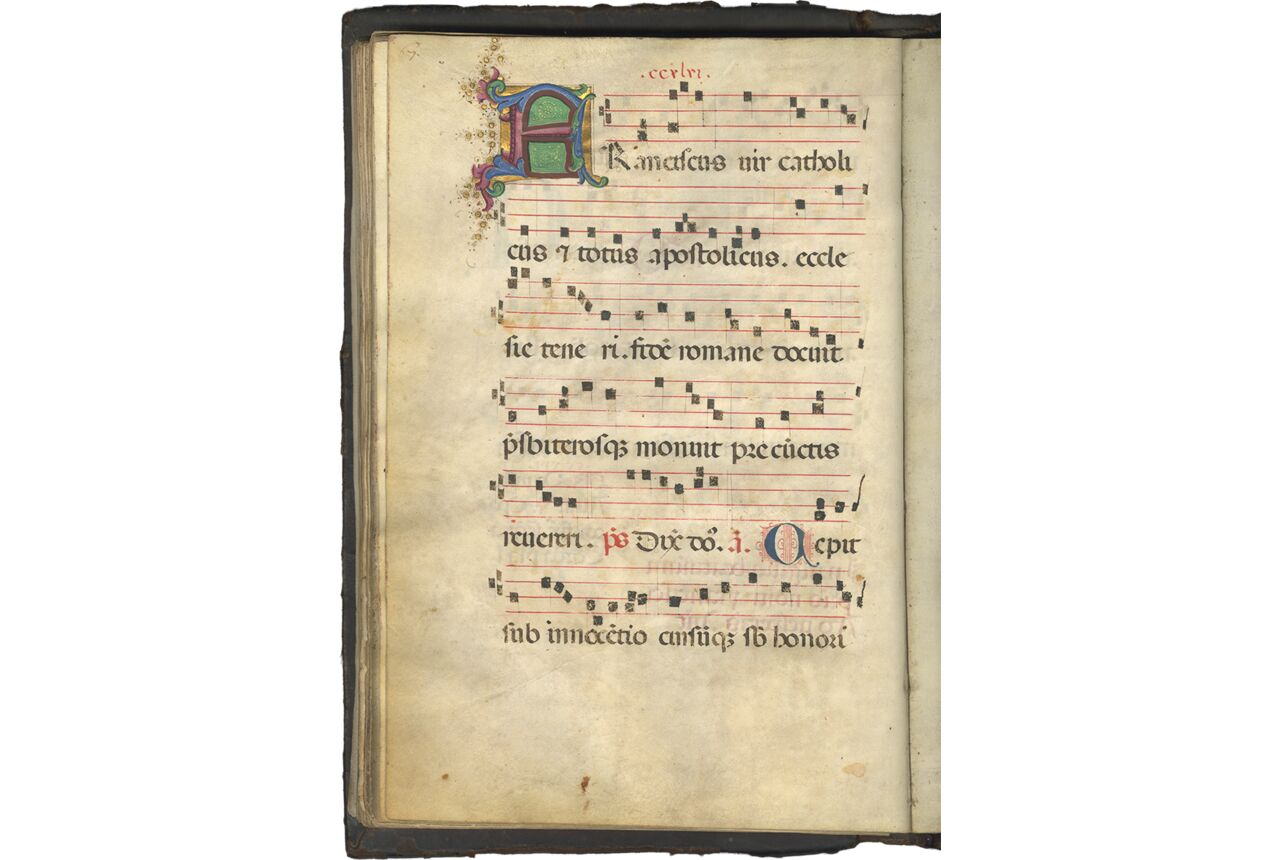 .ccxlvi.
FRanciscus uir catholi
cus ⁊ totus apostolicus. eccle
sie tene ri. fidē romane docuit
p̄sbiterosqꝫ monuit pre cūctis
reuereri. p̄s Dix̄ dō. ā. Cepit
sub innocētio cursūqꝫ sb̄ honori